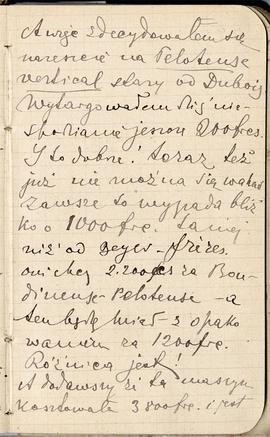 A więc zdecydowałem się
nareszcie na Pelotense
vertical stary od Dubois
Wytargowałem niespodzianie jeszcze 200 frcs.
I to dobre! teraz też
już nie można się wahać
Zawsze to wypada blizko o 1000 frc. taniej
niż od Beyer-frères.
oni chcą 2.200 frcs za Boudineuse-Peloteuse - a
ten będę miał z opakowaniem za 1200 frc.
Różnica jest!
A dodawszy że ta maszyn
kosztowała 3800 frc. i jest